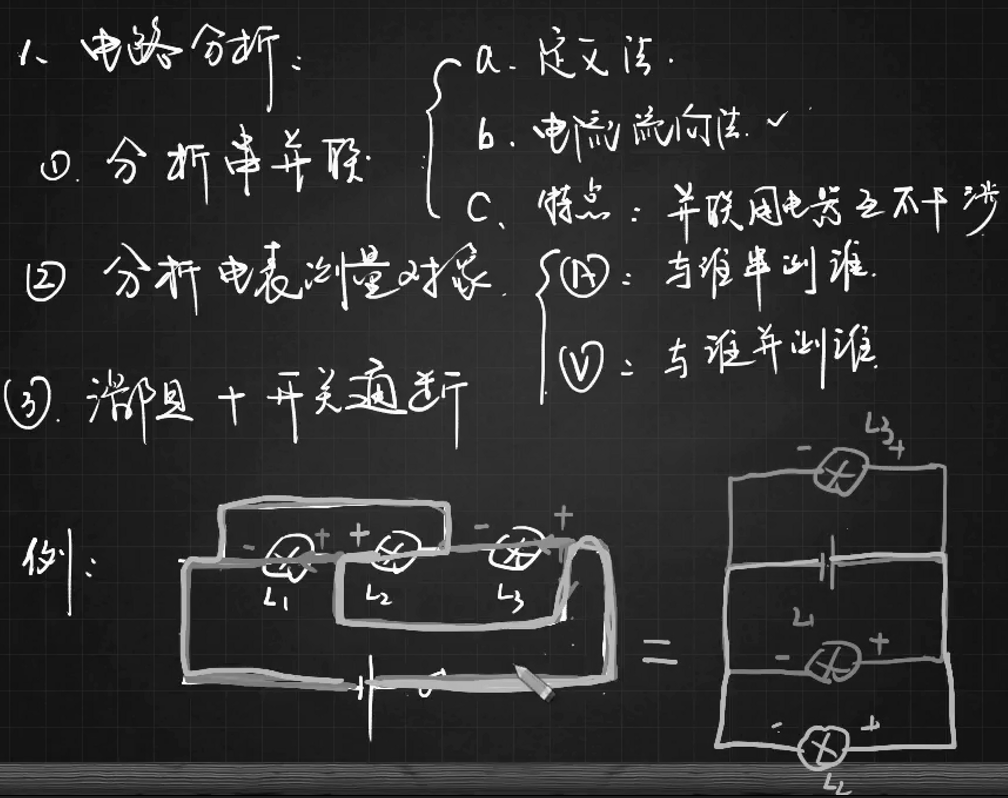 1、电路分析：
a. 定义法.
b. 电流流向法. ✓
c、特点：并联用电器互不干涉
①. 分析串并联.
② 分析电表测量对象.
Ⓐ：与谁串测谁.
Ⓥ：与谁并测谁.
③. 滑阻 + 开关通断
例：
- + + - +
L1 L2 L3
=
L3
- +
L1
- +
- +
L2